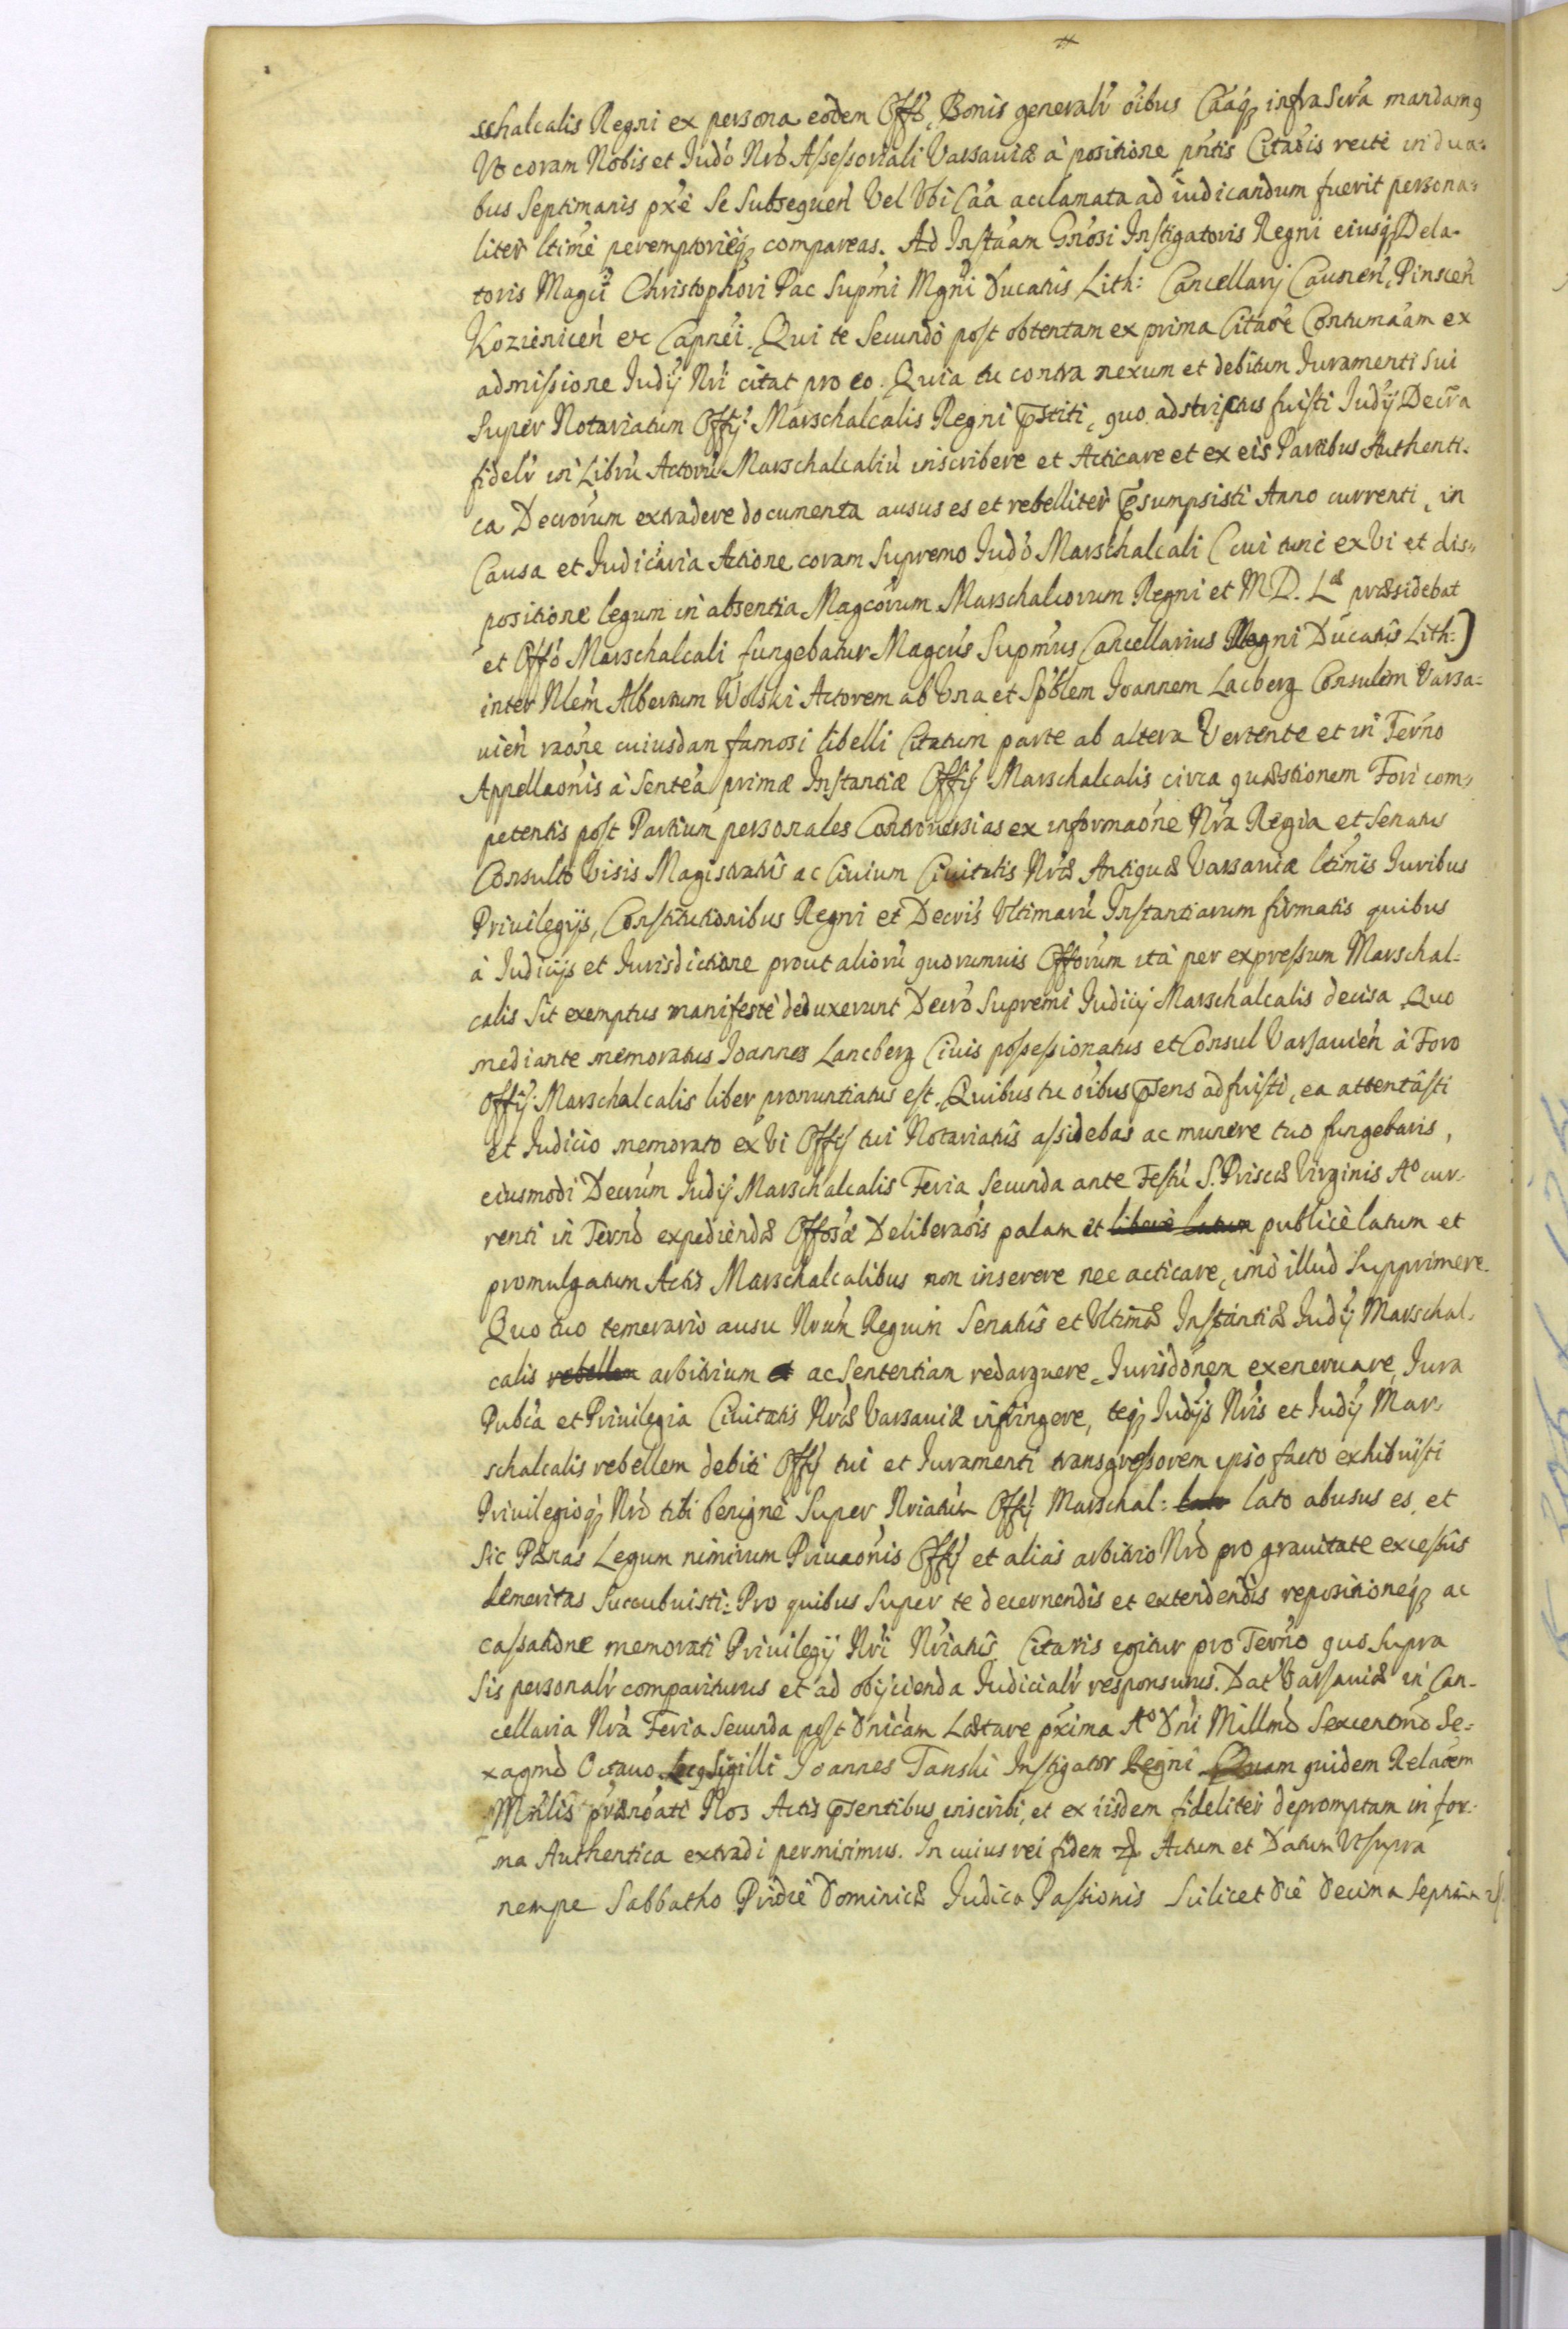 schalcalis Regni ex persona eodem Offo, Bonis generalr oibus Caaq3 infra Scra mandamq
Ut coram Nobis et Judo Nro Assessoriali Varsaviæ à positione pntis Citaois recte in dua:
bus Septimanis pxe Se Subsequen Vel Ubi Caa acclamata ad iudicandum fuerit persona:
liter ltime peremptorieq3 compareas. Ad Instaam Gnosi Instigatoris Regni eiusq3 Dela-
toris Magci Christophori Pac Supmi Mgni Ducatus Lith: Cancellarij Caunen, Pinscen
Kozienicen etc Capnei. Qui te Secundo post obtentam ex prima Citaoe Contumaam ex
admissione Judij Nri citat pro eo. Quia tu contra nexum et debitum Juramenti Sui
Super Notariatum Offij Marschalcalis Regni pstiti, quo adstrictus fuisti Judij Decra
fidelr in Libru Actoru Marschalcaliu inscribere et Acticare et ex eis Partibus Authenti-
ca Decrorum extradere documenta ausus es et rebelliter psumpsisti Anno currenti, in
Causa et Judiciaria Actione coram Supremo Judo Marschalcali (cui tunc ex Vi et dis=
positione legum in absentia Magcorum Marschalcorum Regni et M D. Læ præsidebat
et Offo Marschalcali fungebatur Magcus Supmus Cancellarius Magni Ducatus Lith:)
inter Nlem Albertum Wolski Actorem ab Una et Spblem Joannem Lacberg Consulem Varsa=
uien raone cuiusdan famosi libelli Citatum parte ab altera Vertente et in Terno
Appellaonis à Sentea primæ Instantiæ Offij Marschalcalis circa quæstionem Fori com=
petentis post Partium personales Controuersias ex informaone Nra Regia et Senatus
Consulto Visis Magistratus ac Ciuium Ciuitatis Nræ Antiquæ Varsauiæ ltimis Juribus
Priuilegijs, Constitutionibus Regni et Decris Ultimaru Instantiarum firmatis quibus
à Judicijs et Jurisdictione prout alioru quorumuis Offorum ita per expressum Marschal=
calis Sit exemptus manifeste deduxerunt Decro Supremi Judicij Marschalcalis decisa. Quo
mediante memoratus Joannes Lancberg Ciuis possessionatus et Consul Varsauien à Foro
Offij Marschalcalis liber pronuntiatus est. Quibus tu oibus psens adfuisti, ea attentasti
et Judicio memorato ex Vi Offij tui Notariatus assidebas ac munere tuo fungebaris,
eiusmodi Decrum Judij Marschalcalis Feria Secunda ante Festu S. Priscæ Virginis Ao cur-
renti in Terno expediendæ Offosæ Deliberaois palam et libere latum publice latum et
promulgatum Actis Marschalcalibus non inserere nec acticare, imo illud Supprimere.
Quo tuo temerario ausu Nrum Regium Senatus et Ultimæ Instantiæ Judij Marschal=
calis rebellem arbitrium et ac Sententiam redarguere, Jurisdonem exeneruare, Jura
Pubca et Priuilegia Ciuitatis Nræ Varsauiæ infringere, teq3 Judijs Nris et Judij Mar=
schalcalis rebellem debiti Offij tui et Juramenti transgressorem ipso facto exhibuisti
Priuilegioq3 Nro tibi benigne Super Nriatum Offij Marschal: lato lato abusus es, et
Sic Pænas Legum nimirum Priuaonis Offij et alias arbitrio Nro pro grauitate excessus
demeritas Succubuisti: Pro quibus Super te decernendis et extendendis repositioneq3 ac
cassatione memorati Priuilegij Nri Nriatus Citaris igitur pro Terno quo Supra
Sis personalr compariturus et ad obijcienda Judicialr responsurus. Dat Varsauiæ in Can-
cellaria Nra Feria Secunda post Dnicam Lætare pxima Ao Dni Millmo Sexcentmo Se=
xagmo Octauo. Locq Sigilli Joannes Tanski Instigator Regni Quam quidem Relaoem
Mnlis prænoati Nos Actis psentibus inscribi, et ex iisdem fideliter depromptam in for-
ma Authentica extradi permisimus. In cuius rei fidem Actum et Datum Ut supra
nempe Sabbatho Pridie Dominicæ Judica Passionis Scilicet Die Decima Septima